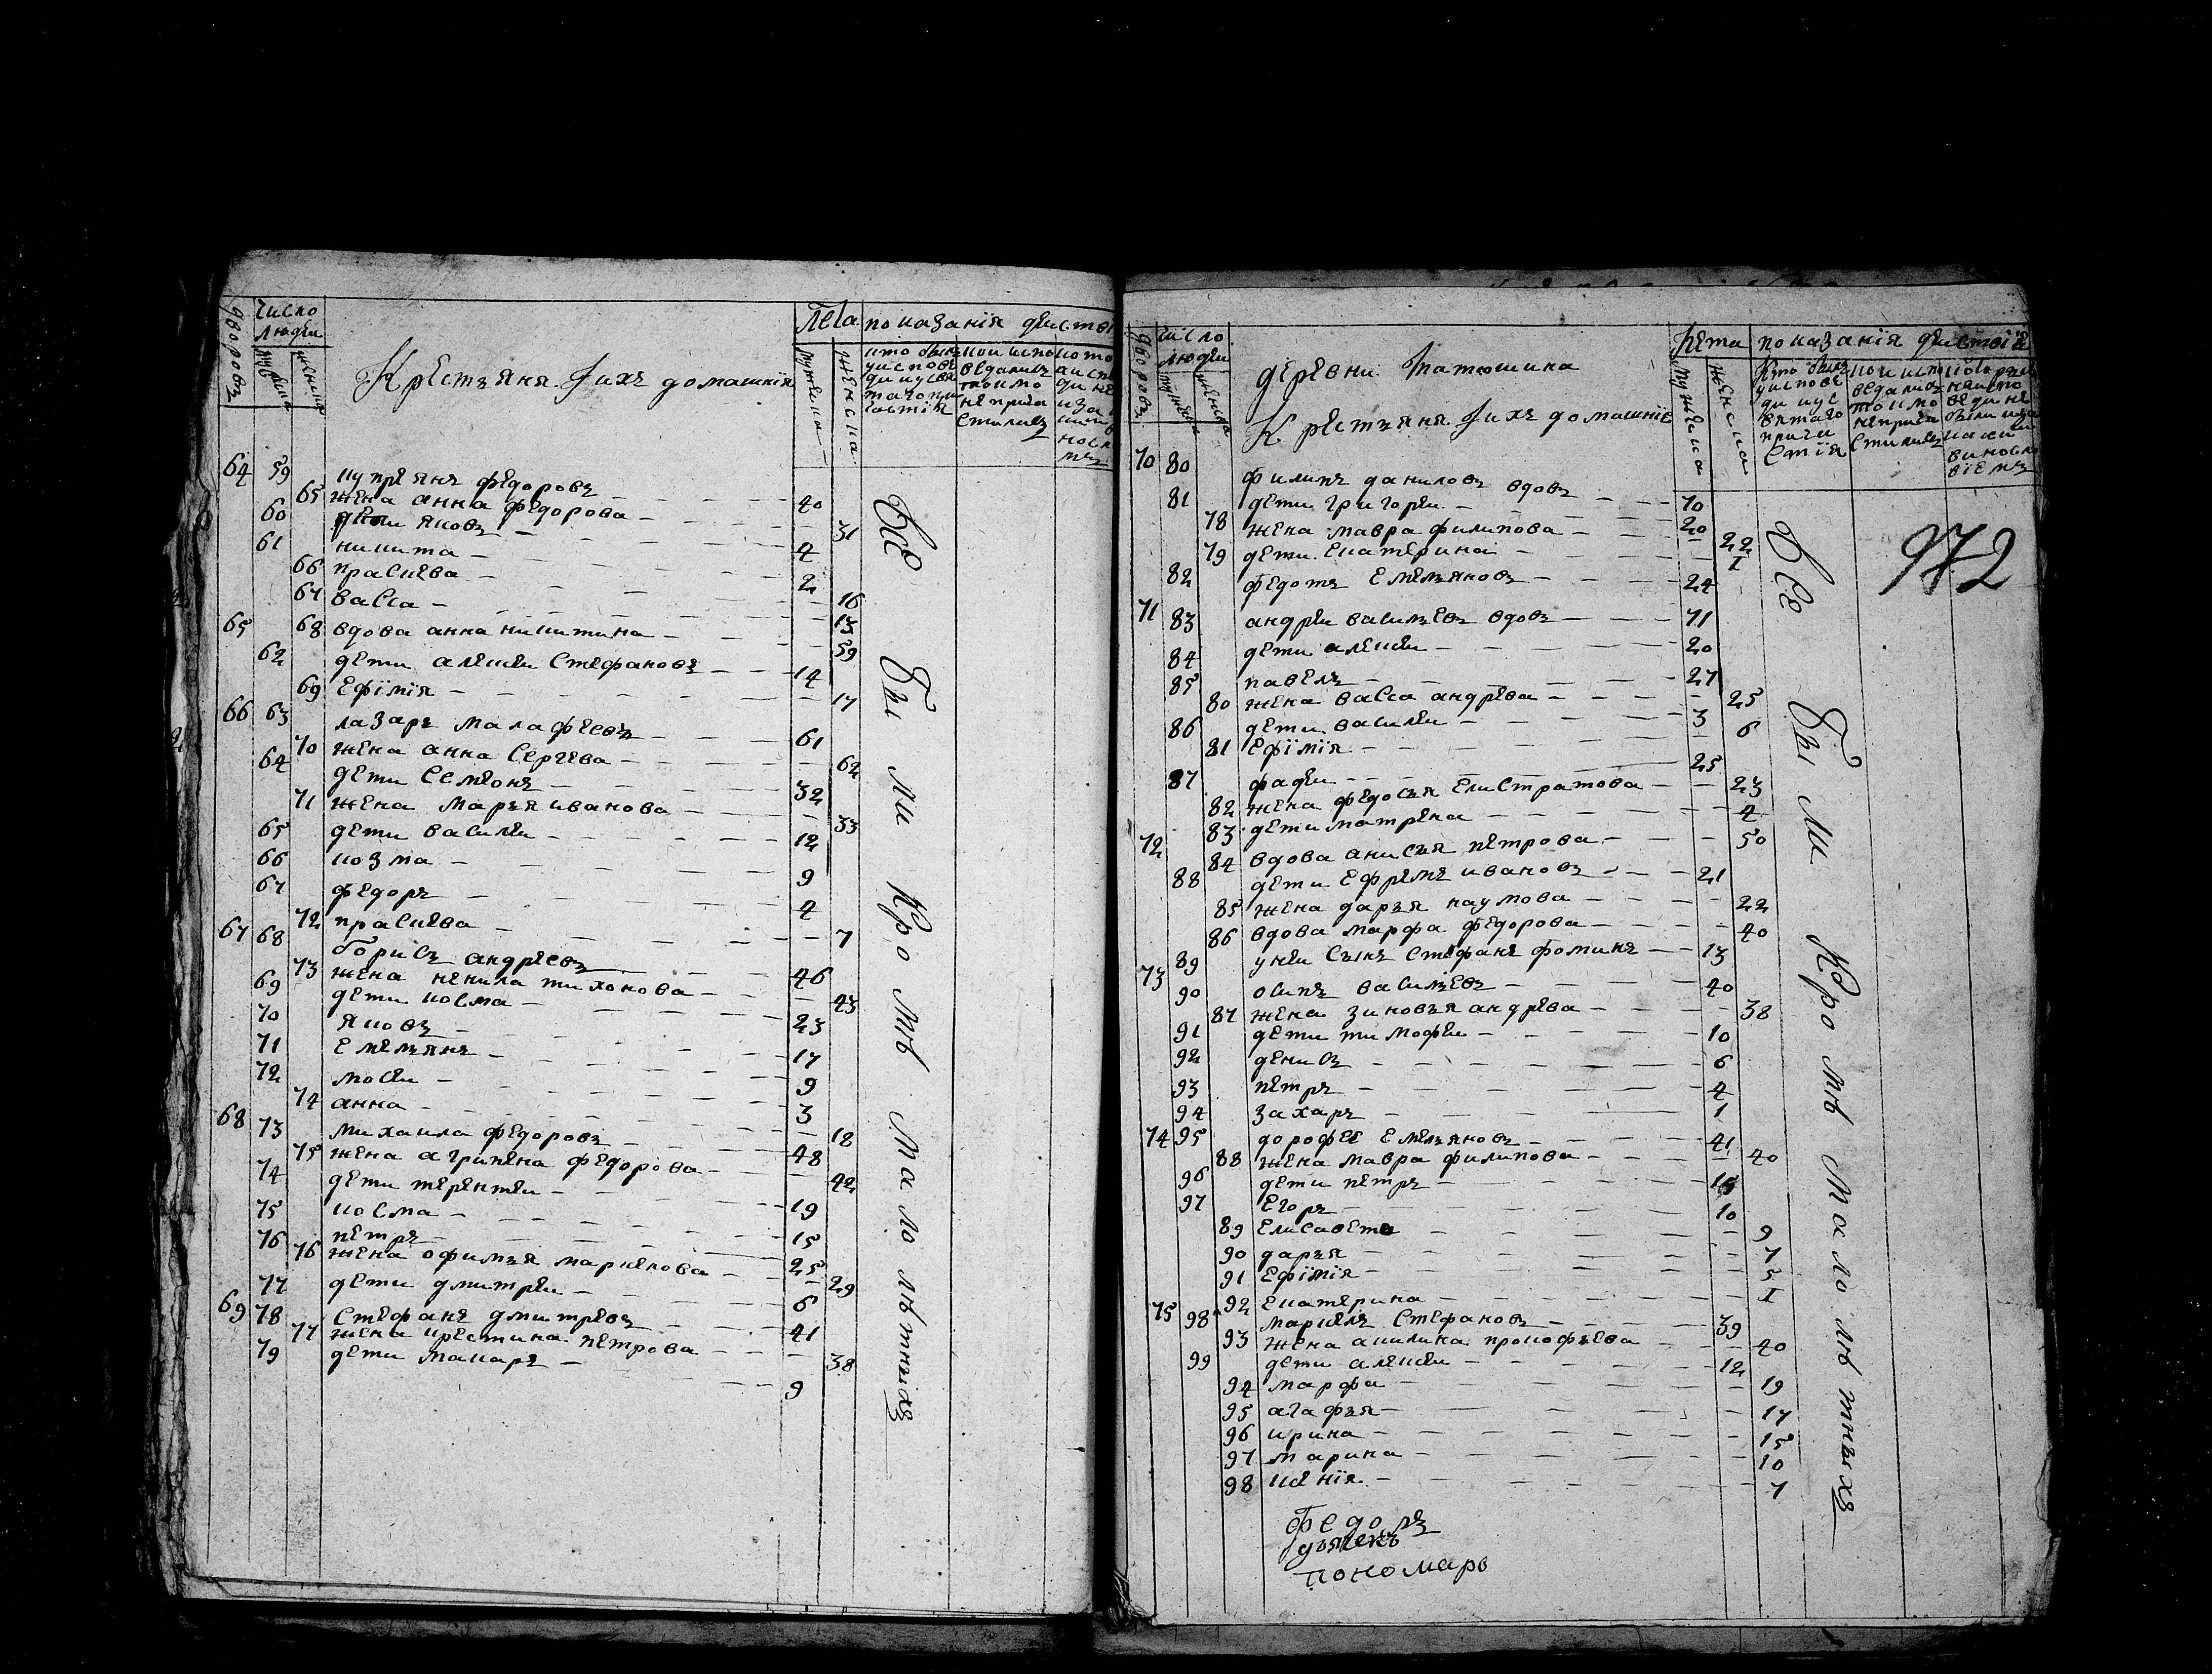 дворовъ
число
людеи
мужеска
женска
Крестьяня Iихъ домашнїя
Лета
мужеска
женска
показанїя деисте
кто былъ
у исповѣ
ди и у свя
таго при
частїя
кои испо
ведались
токмо
не прича
стились
64 59 куприянъ федоровъ 40
65 жена анна федорова 31
60 дети яковъ 4
61 никита 2
66 прасковя 16
67 васса 13
65 68 вдова анна никитина 59
62 дети алексеи стефановъ 14
69 ефiмїя 17
66 63 лазарь малафеевъ 61
70 жена анна сергеева 62
64 дети семионъ 32
71 жена марья иванова 33
65 дети василеи 12
66 козма 9
67 федоръ 4
72 праскева 7
67 68 борисъ андреевъ 46
73 жена ненила тихонова 43
69 дети косма 23
70 яковъ 17
71 емельянъ 9
72 мосеи 3
74 анна 18
68 73 михаила федоровъ 48
75 жена агрипена федорова 42
74 дети терентеи 19
75 косма 15
76 петръ 25
76 жена офимья маркелова 29
77 дети дмитреи 6
69 78 стефанъ дмитревъ 41
77 жена крестина петрова 38
79 дети макаръ 9
Все были кроме малолѣтныхъ
дворовъ
число
людеи
мужеска
женска
деревни Татюшина
Крестьяня Iихъ домашнїе
Лета
мужеска
женска
показанїя деиствїя
972
70 80 филипъ даниловъ вдовъ 70
81 дети григореи 20
78 жена мавра филипова 22
79 дети екатерина 1
82 федотъ емельяновъ 24
71 83 андреи васильевъ вдовъ 71
84 дети алексеи 20
85 павелъ 27
80 жена васса андрева 25
86 дети василеи 3
81 ефiмїя 6
87 фадеи 25
82 жена федосья елистратова 23
83 дети матрена 4
72 84 вдова анисья петрова 50
88 дети ефремъ ивановъ 21
85 жена дарья наумова 22
86 вдова марфа федорова 40
89 у неи сынъ стефанъ фоминъ 13
73 90 осипъ васильевъ 40
87 жена зиновья андрева 38
91 дети тимофеи 10
92 денисъ 6
93 петръ 4
94 захаръ 1
74 95 дорофее емельяновъ 41
88 жена мавра филипова 40
96 дети петръ
97 егоръ 10
89 елисавета 9
90 дарья 7
91 ефiмїя 5
92 екатерина 1
75 98 маркелъ стефановъ 39
93 жена акилина прокофьева 40
99 дети алексеи 12
94 марфа 19
95 агафья 17
96 ирина 15
97 марина 10
98 ксенїя 7
Все были кроме малолѣтныхъ
федоръ
дьячекъ
пономарь